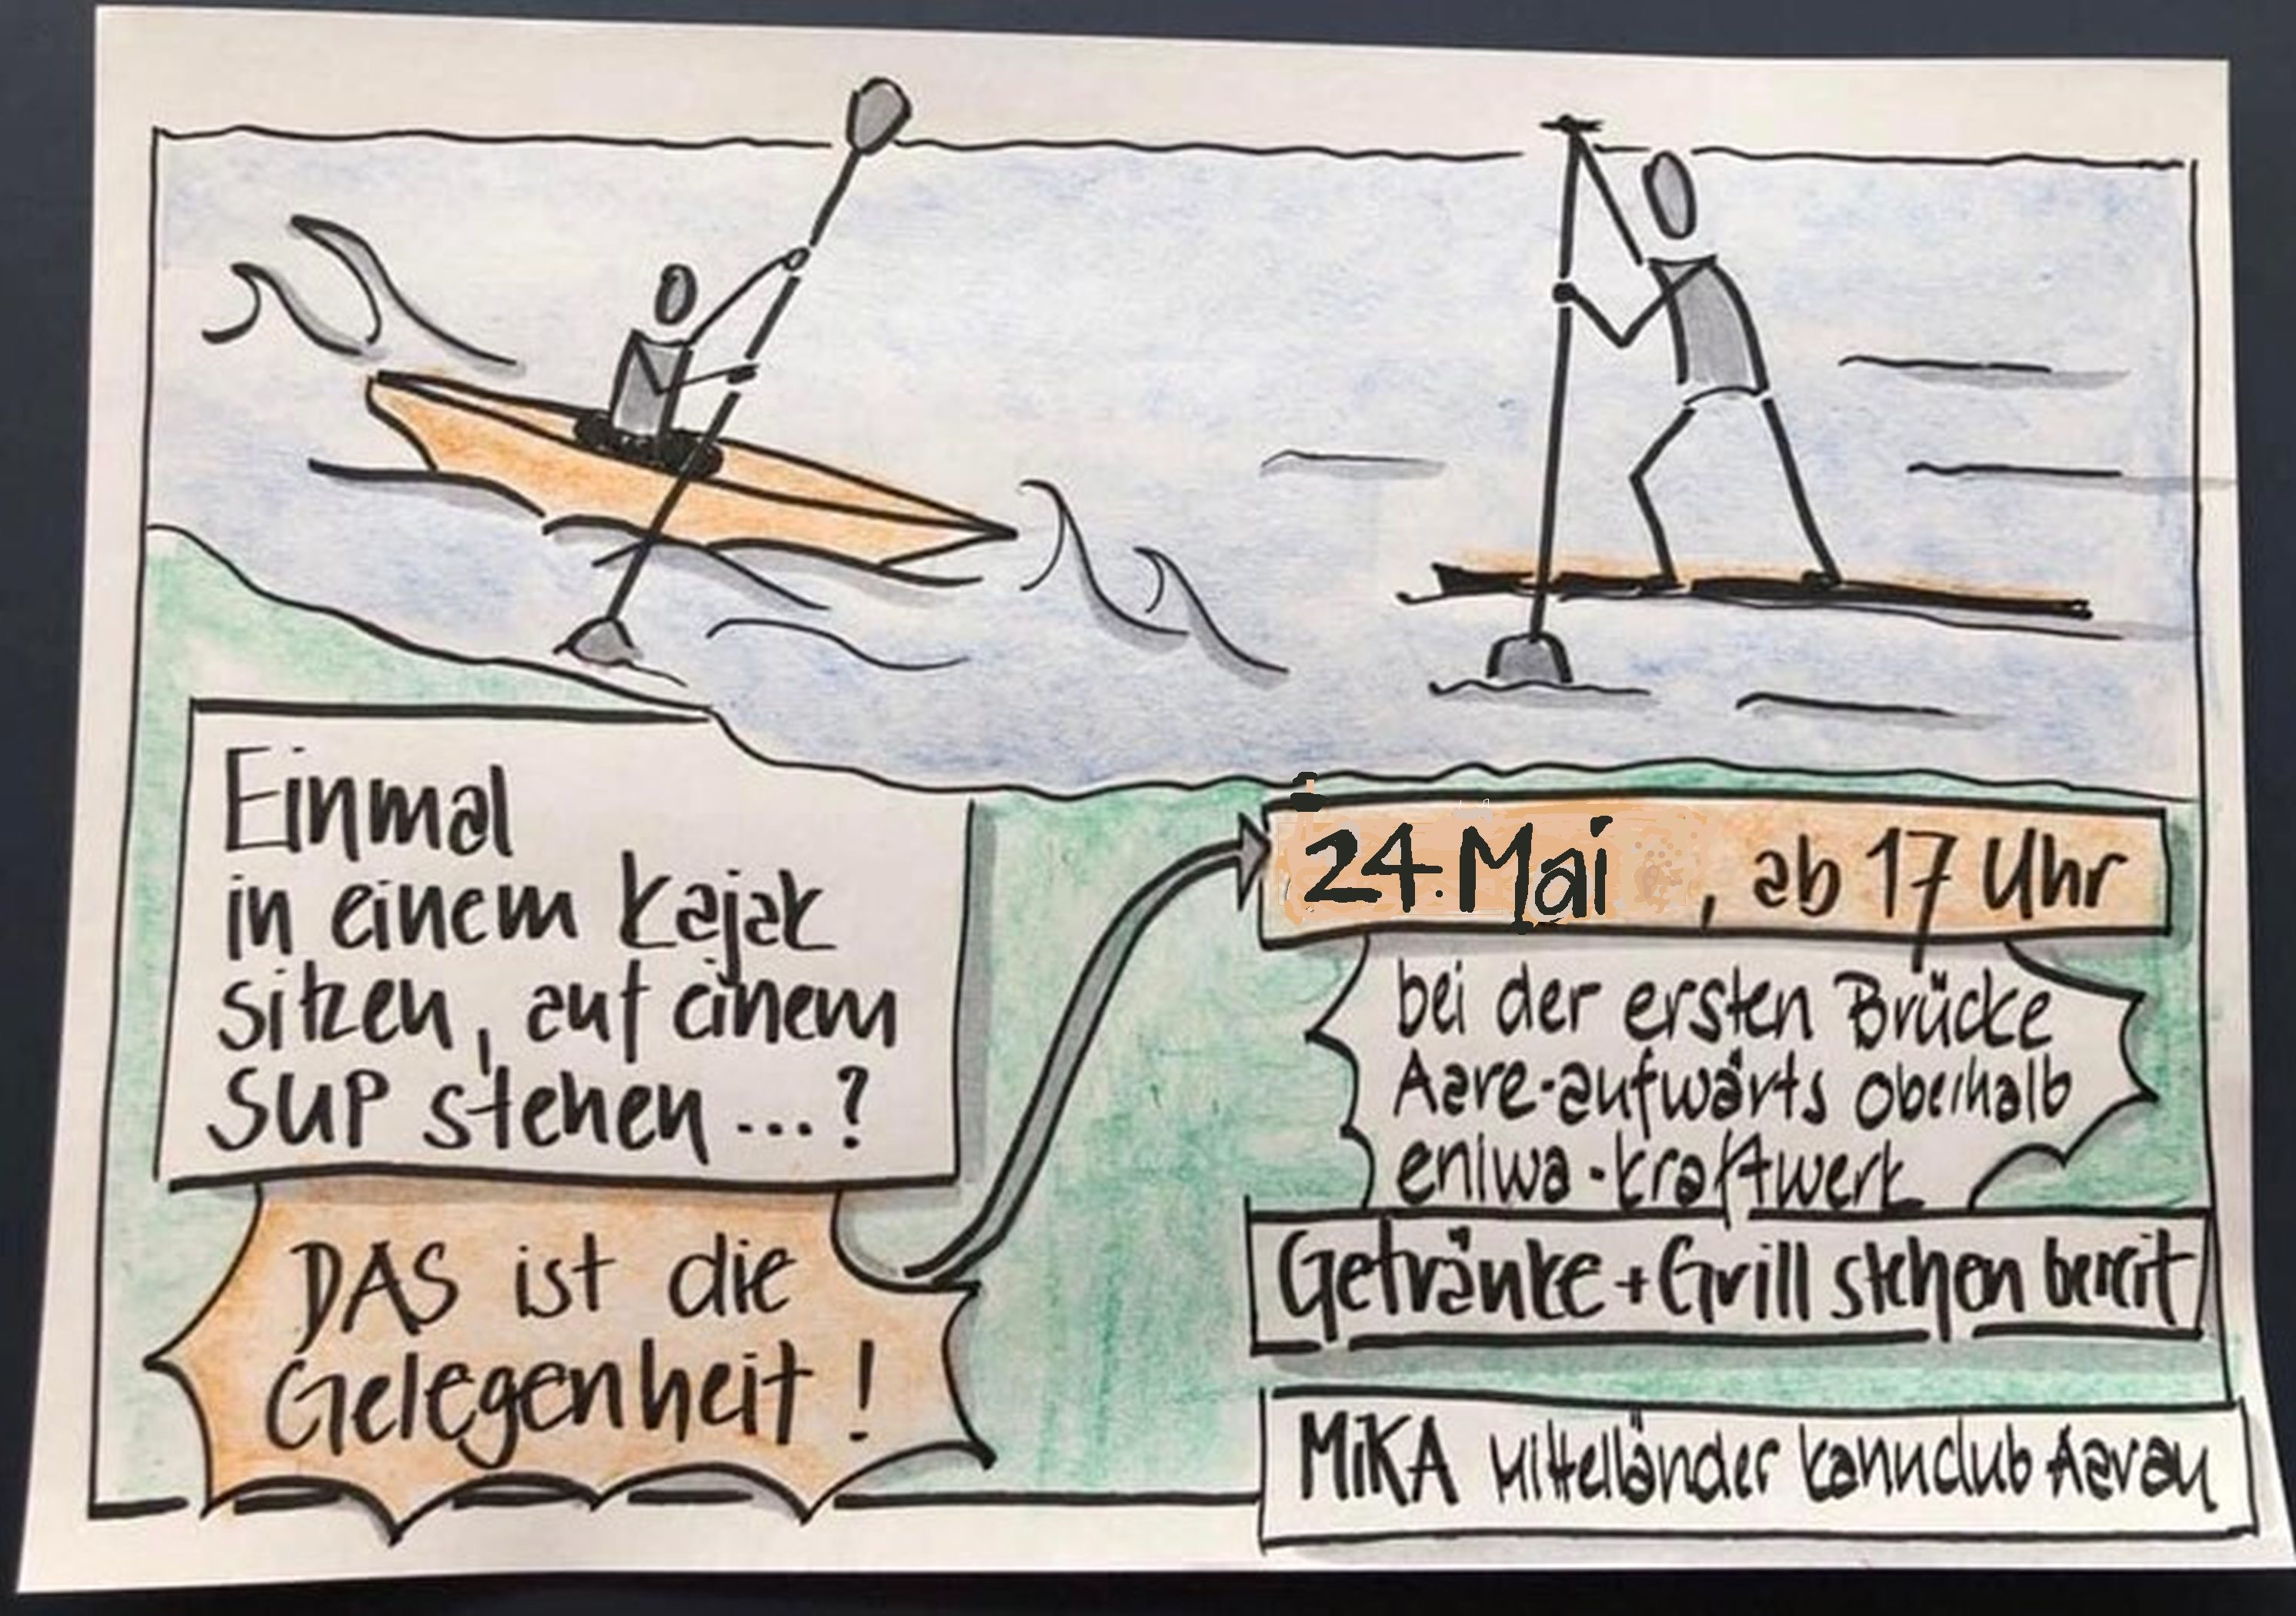 Einmal
in einem Kajak
sitzen, auf einem
SUP stehen ...?
DAS ist die
Gelegenheit!
24. Mai, ab 17 Uhr
bei der ersten Brücke
Aare-aufwärts oberhalb
eniwa-Kraftwerk
Getränke + Grill stehen bereit
MiKA Mittelländer Kanuclub Aarau